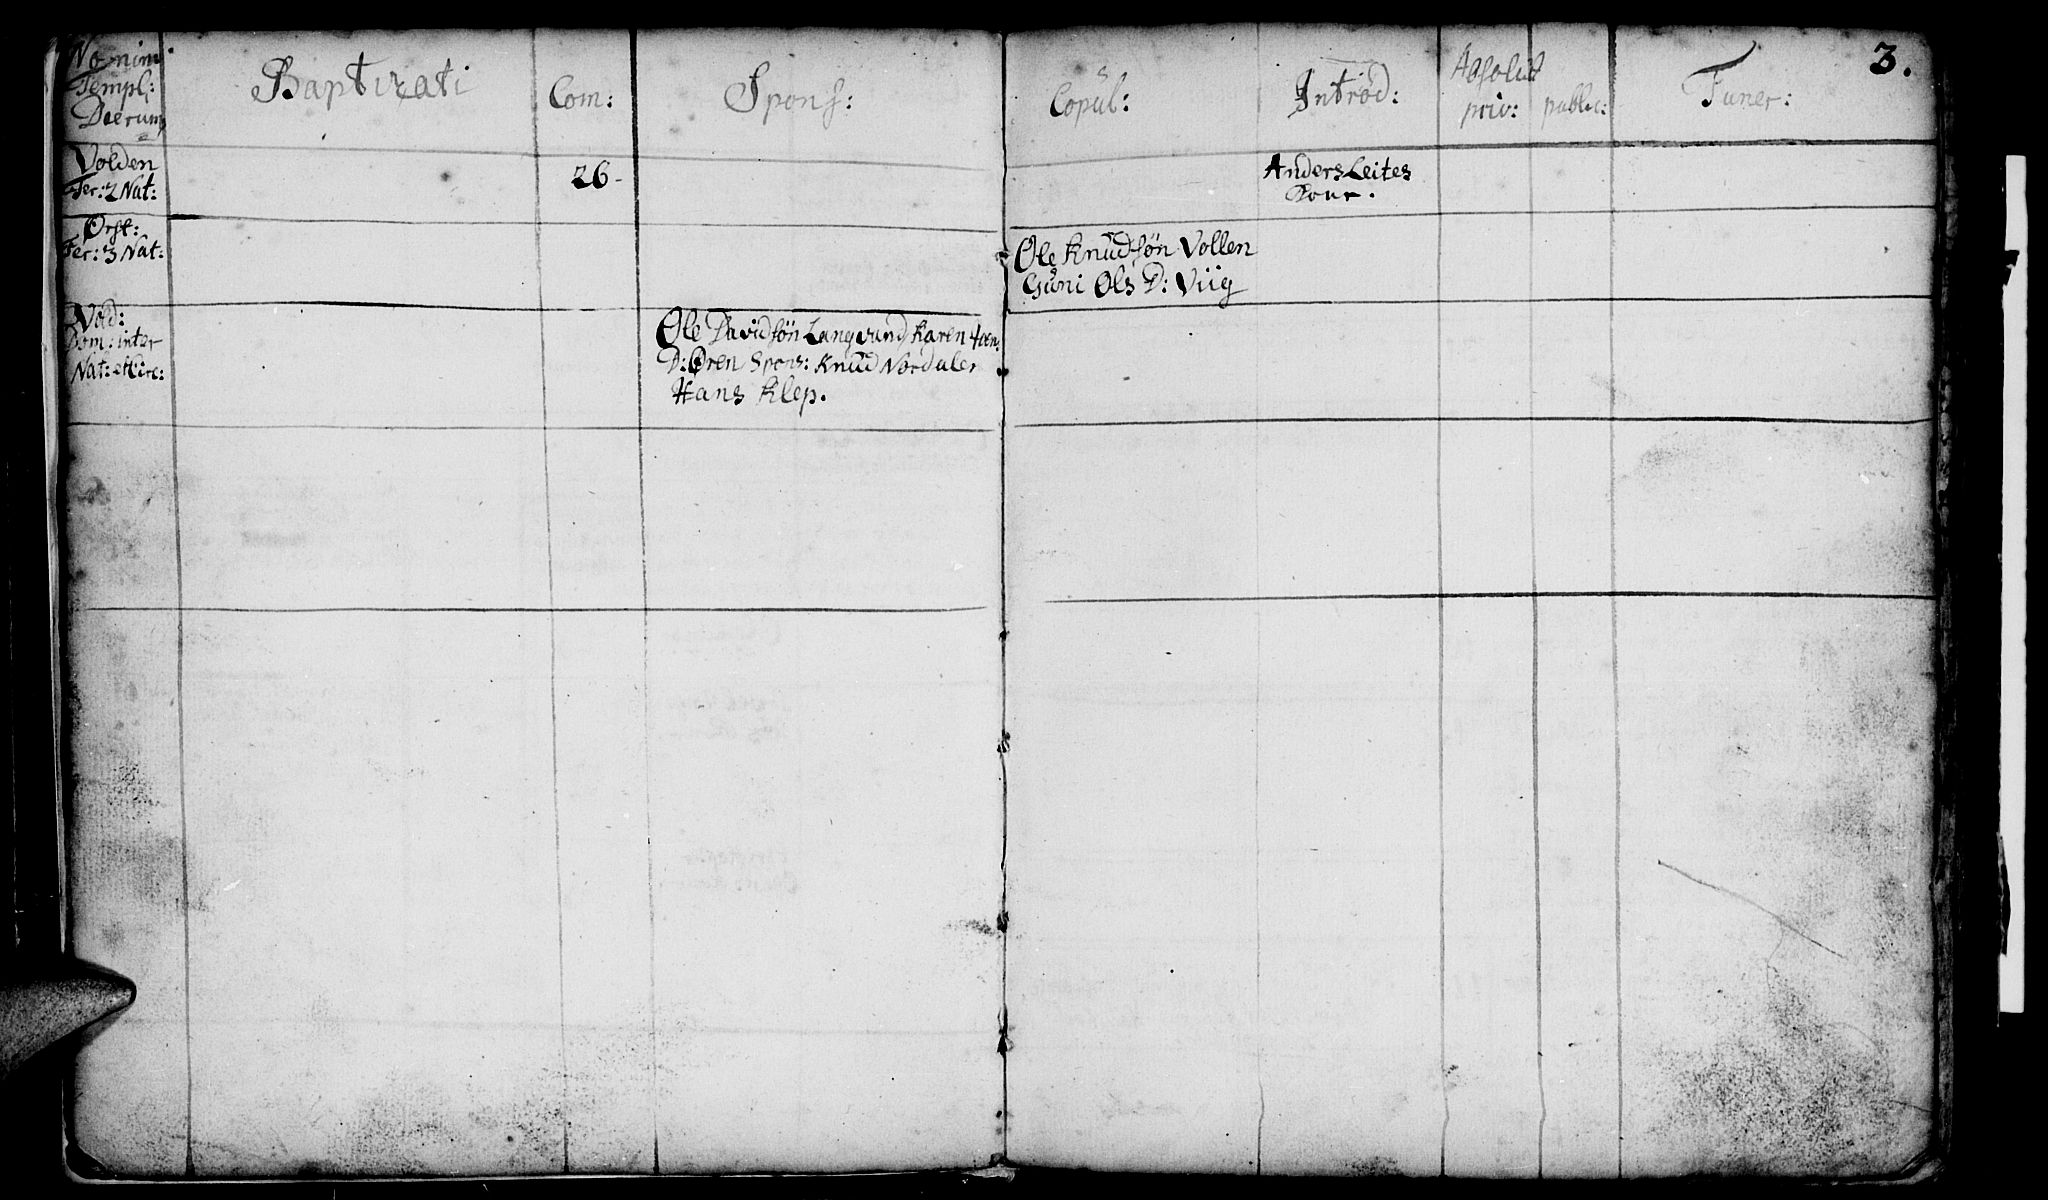 3.
Nomin
Templ:
Dierum
Baptizati
Com:
Spons:
Copul:
Introd:
Absolut
priv:
public:
Funer:
Volden
Fer: 2 Nat:
26
Anders Leites
Kone.
Ørst:
Fer: 3 Nat:
Ole Knudsøn Vollen
Guni Ols D: Viig
Vold:
Dom: inter
Nat: et Circ:
Ole Davidsøn Langvand Karen
D: Øren Spons: Knud Nordaler
Hans Klep.